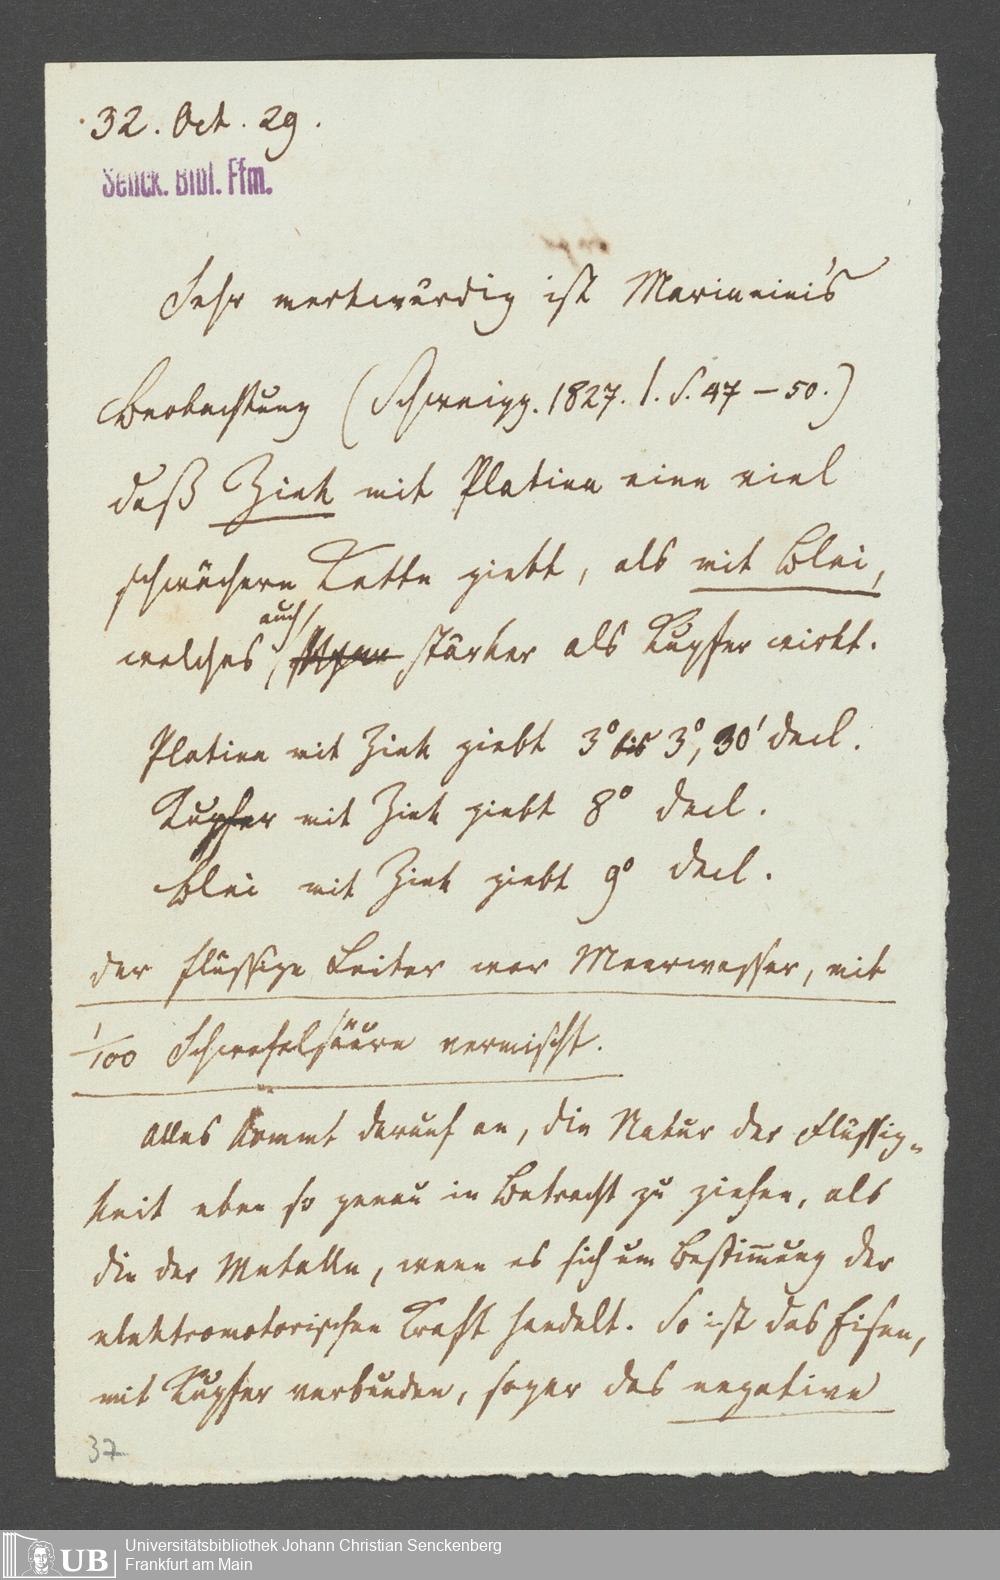 32. Oct. 29.
Senck. Bibl. Ffm.
Sehr merkwürdig ist Marianini's
Beobachtung (Schweigg. 1827. I. S. 47 – 50.)
daß Zink mit Platina eine viel
schwächere Kette giebt, als mit Blei,
auch
welches stärker als Kupfer wirkt.
Platina mit Zink giebt 3° bis 3°, 30' decl.
Kupfer mit Zink giebt 8° decl.
Blei mit Zink giebt 9° decl.
der flüssige Leiter war Meerwasser, mit
1/100 Schwefelsäure vermischt.
Alles kommt darauf an, die Natur der Flüssig-
keit eben so genau in Betracht zu ziehen, als
die der Metalle, wenn es sich um Bestimmung der
elektromotorischen Kraft handelt. So ist das Eisen,
mit Kupfer verbunden, sogar das negative
37
UB
Universitätsbibliothek Johann Christian Senckenberg
Frankfurt am Main